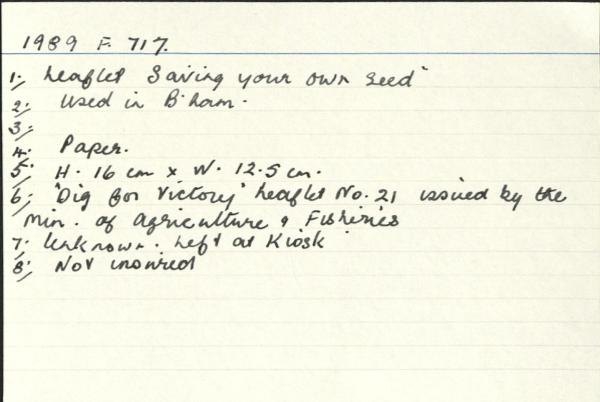 1989 F. 717.
1. Leaflet "Saving your own seed"
2. Used in B'ham.
3.
4. Paper.
5. H. 16 cm x W. 12.5 cm.
6. "Dig for Victory" Leaflet No. 21 issued by the
Min. of Agriculture & Fisheries
7. Unknown. Left at Kiosk
8. Not insured